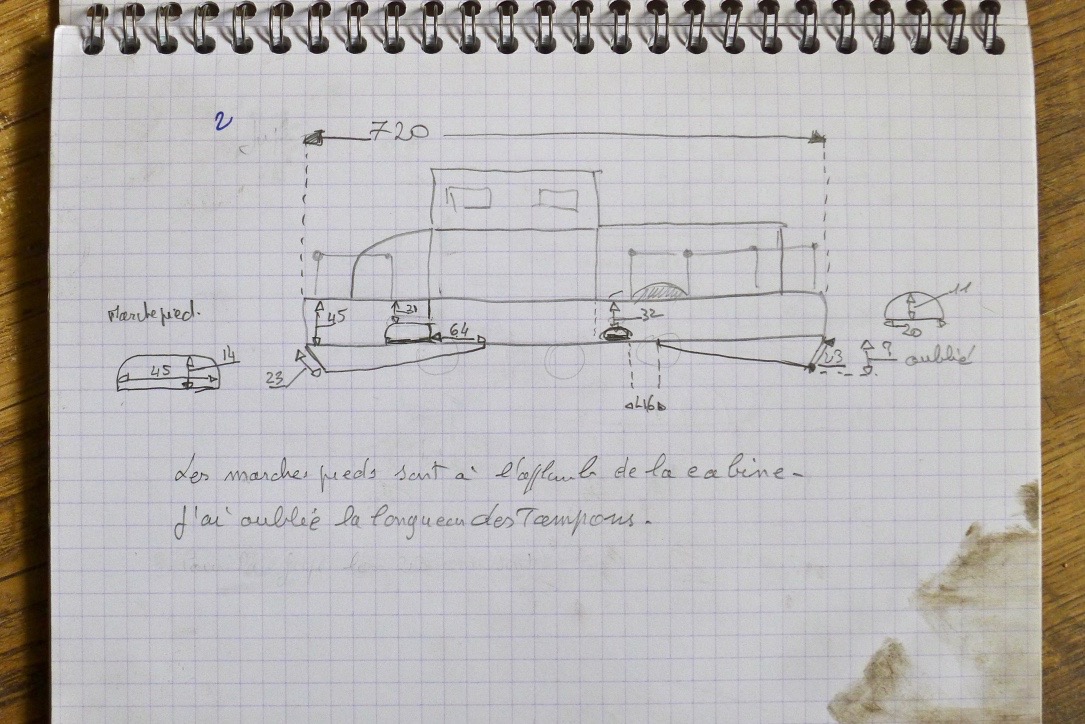 2
720
45
32
64
Marche pied.
14
45
23
11
20
23
?
oublié
16
Les marches pieds sont à l'aplomb de la cabine -
J'ai oublié la longueur des Tampons.